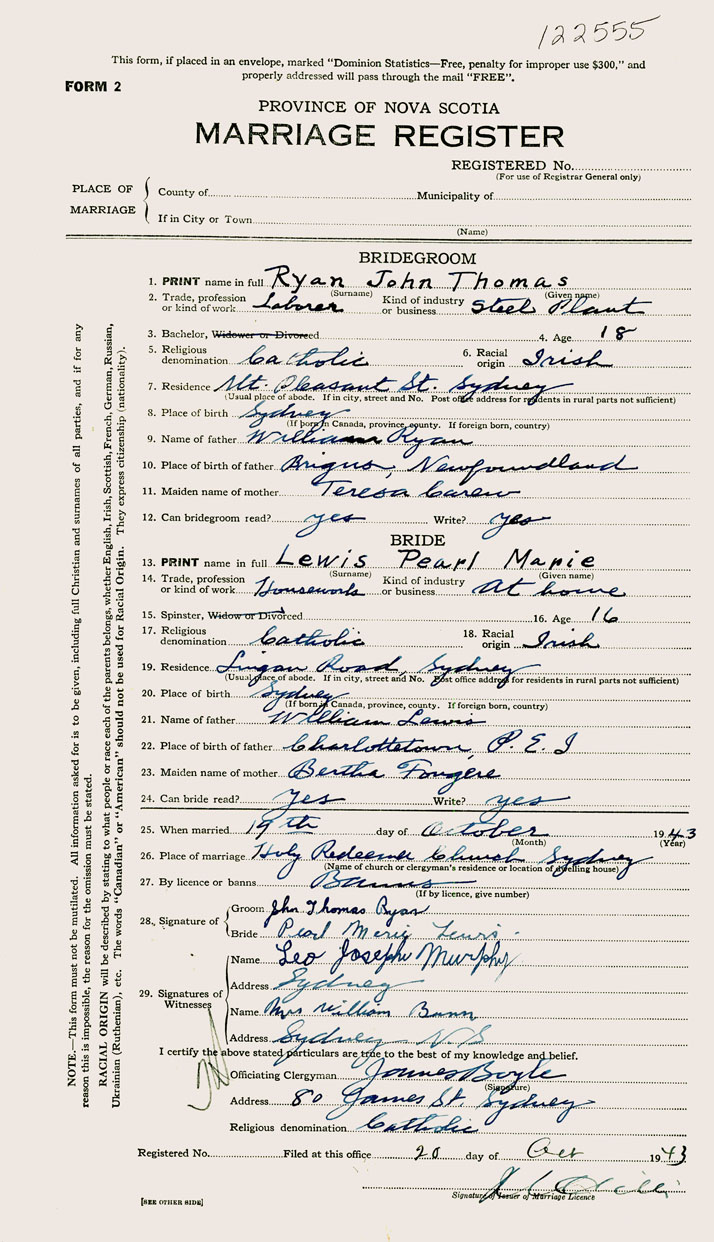 122555
This form, if placed in an envelope, marked "Dominion Statistics—Free, penalty for improper use $300," and
properly addressed will pass through the mail "FREE".
FORM 2
PROVINCE OF NOVA SCOTIA
MARRIAGE REGISTER
REGISTERED No.
(For use of Registrar General only)
PLACE OF MARRIAGE
County of Municipality of
If in City or Town
(Name)
BRIDEGROOM
1. PRINT name in full Ryan John Thomas
(Surname) (Given name)
2. Trade, profession or kind of work Laborer Kind of industry or business Steel Plant
3. Bachelor, Widower or Divorced 4. Age 18
5. Religious denomination Catholic 6. Racial origin Irish
7. Residence Mt. Pleasant St. Sydney
(Usual place of abode. If in city, street and No. Post office address for residents in rural parts not sufficient)
8. Place of birth Sydney
(If born in Canada, province, county. If foreign born, country)
9. Name of father William Ryan
10. Place of birth of father Brigus, Newfoundland
11. Maiden name of mother Teresa Carew
12. Can bridegroom read? yes Write? yes
BRIDE
13. PRINT name in full Lewis Pearl Marie
(Surname) (Given name)
14. Trade, profession or kind of work Housework Kind of industry or business At home
15. Spinster, Widow or Divorced 16. Age 16
17. Religious denomination Catholic 18. Racial origin Irish
19. Residence Lingan Road, Sydney
(Usual place of abode. If in city, street and No. Post office address for residents in rural parts not sufficient)
20. Place of birth Sydney
(If born in Canada, province, county. If foreign born, country)
21. Name of father William Lewis
22. Place of birth of father Charlottetown, P.E.I
23. Maiden name of mother Bertha Fougere
24. Can bride read? Yes Write? yes
25. When married 19th day of October 1943
(Month) (Year)
26. Place of marriage Holy Redeemer Church Sydney
(Name of church or clergyman's residence or location of dwelling house)
27. By licence or banns Banns
(If by licence, give number)
28. Signature of
Groom John Thomas Ryan
Bride Pearl Marie Lewis
29. Signatures of Witnesses
Name Leo Joseph Murphy
Address Sydney
Name Mrs William Bunn
Address Sydney N.S
I certify the above stated particulars are true to the best of my knowledge and belief.
Officiating Clergyman James Boyle
(Signature)
Address 80 James St Sydney
Religious denomination Catholic
Registered No. Filed at this office 20 day of Oct 1943
Signature of Issuer of Marriage Licence
[SEE OTHER SIDE]
NOTE.—This form must not be mutilated. All information asked for is to be given, including full Christian and surnames of all parties, and if for any
reason this is impossible, the reason for the omission must be stated.
RACIAL ORIGIN will be described by stating to what people or race each of the parents belongs, whether English, Irish, Scottish, French, German, Russian,
Ukrainian (Ruthenian), etc. The words "Canadian" or "American" should not be used for Racial Origin. They express citizenship (nationality).